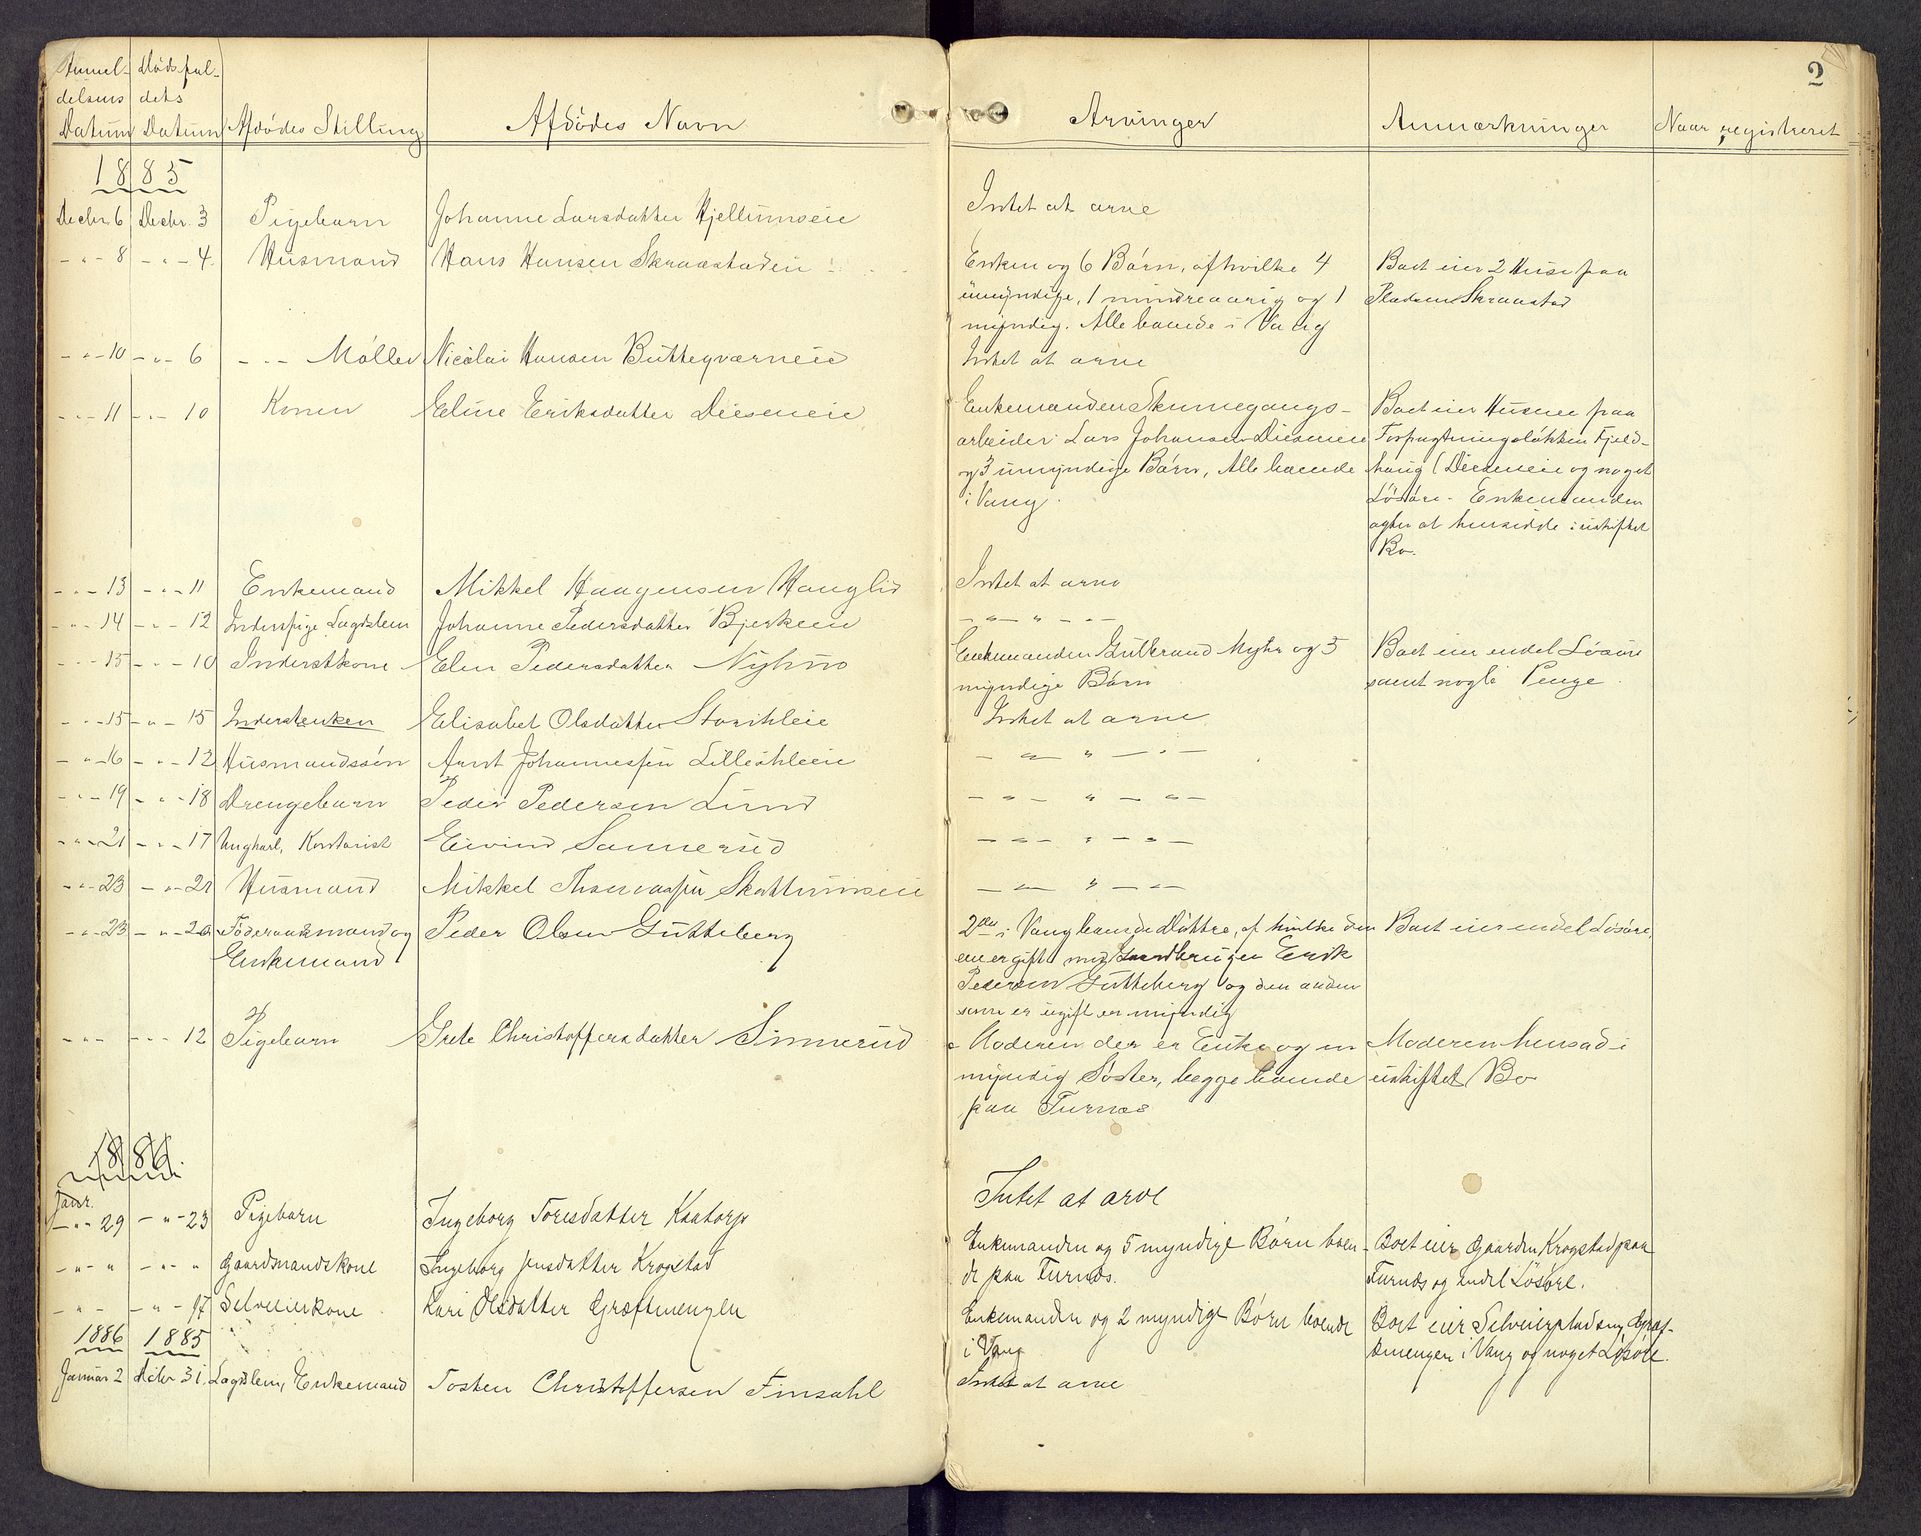 2
Anmel- Dödsfal-
delsens dets
Datum Datum Afdödes Stilling Afdödes Navn Arvinger Anmærkninger Naar registreret
1885
Decbr. 6 Decbr. 3 Pigebarn Johanne Larsdatter Hjellumseie Intet at arve
- " - 8 - " - 4. Husmand Hans Hansen Skraastadeie Enken og 6 Börn, afhvilke 4 Boet eier 2 Huse paa
umyndige, 1 mindreaarig og 1 Pladsen Skraastad
myndig. Alle boende i Vang
- " - 10 - " - 6 - " - Möller Nicolai Hansen Butteqværneie Intet at arve
- " - 11 - " - 10 Konen Eline Eriksdatter Dieseneie Enkemanden Skinnegangs- Boet eier Husene paa
arbeider Lars Johansen Dieseneie Forpagtningslökken Fjeld-
og 3 umyndige Börn, Alle boende haug (Dieseneie og noget
i Vang. Lösöre. Enkemanden
agter at hensidde i uskiftet
Bo.
- " - 13 - " - 11 Enkemand Mikkel Haagensen Hauglid Intet at arve
- " - 14 - " - 12 Inderstpige Lægdslem Johanne Pedersdatter Bjerkeeie - " - " - " -
- " - 15 - " - 10 Inderstkone Elen Pedersdatter Nyhus Enkemanden Gulbrand Myhr og 5 Boet eier endel Lösöre
myndige Börn samt nogle Penge.
- " - 15 - " - 15 Inderstenken Elisabet Olsdatter Storihleie Intet at arve
- " - 16 - " - 12 Husmandssön Arnt Johannessen Lilleihleie - " - " - " -
- " - 19 - " - 18 Drengebarn Peder Pedersen Lund - " - " - " -
- " - 21 - " - 17 Ungkarl, Kontorist Eivind Sannerud - " - " - " -
- " - 23 - " - 21 Husmand Mikkel Thomassen Skattumseie - " - " - " -
- " - 23 - " - 20 Föderaadsmand og Peder Olsen Gutteberg 2de i Vang boende Döttre, af hvilke den Boet eier endel Lösöre,
Enkemand ene er gift med Gaardbruger Erik
Pedersen Gutteberg og den anden
som er ugift er myndig
- " - - " - 12 Pigebarn Grete Christoffersdatter Sinnerud Moderen der er Enke og en Moderen hensad i
myndig Söster, begge boende uskiftet Bo
paa Furnæs
1886.
Janr.
- " - 29 - " - 23 Pigebarn Ingeborg Toresdatter Kaatorp Intet at arve
- " - " - " - " Gaardmandskone Ingeborg Jensdatter Krogstad Enkemanden og 5 myndige Börn boen- Boet eier Gaarden Krogstad paa
de paa Furnæs. Furnæs og endel Lösöre.
- " - - " - 17 Selveierkone Kari Olsdatter Græftmengen Enkemanden og 2 myndige Börn boende Boet eier Selveierpladsen, Græf-
i Vang tmengen i Vang og noget Lösöre.
1886 1885
Januar 2 Decbr 31. Lægdslem, Enkemand Tosten Christoffersen Finsahl Intet at arve